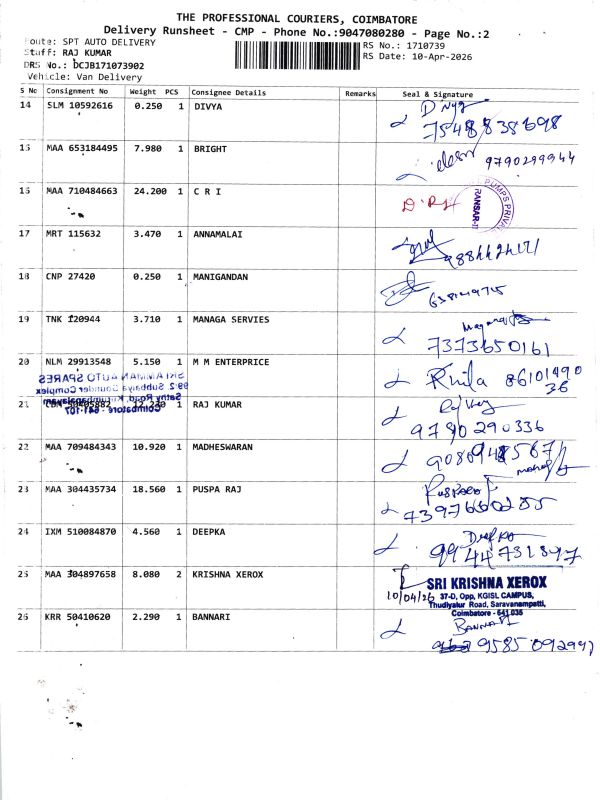 THE PROFESSIONAL COURIERS, COIMBATORE
Delivery Runsheet - CMP - Phone No.:9047080280 - Page No.:2
Route: SPT AUTO DELIVERY
Staff: RAJ KUMAR
DRS No.: DCJB171073902
Vehicle: Van Delivery
RS No.: 1710739
RS Date: 10-Apr-2026
S No Consignment No Weight PCS Consignee Details Remarks Seal & Signature
14 SLM 10592616 0.250 1 DIVYA Divya
7548838698
15 MAA 653184495 7.980 1 BRIGHT 9790299944
16 MAA 710484663 24.200 1 C R I
PUMPS PRIV
17 MRT 115632 3.470 1 ANNAMALAI
18 CNP 27420 0.250 1 MANIGANDAN
19 TNK 120944 3.710 1 MANAGA SERVIES
7373650161
20 NLM 29913548 5.150 1 M M ENTERPRICE
86101490
36
SRI AMMAN AUTO SPARES
99-2 Subbaiya Gounder Complex
Sathy Road,
Coimbatore - 641 107
21 12.230 1 RAJ KUMAR
9790290336
22 MAA 709484343 10.920 1 MADHESWARAN
23 MAA 304435734 18.560 1 PUSPA RAJ
7397660285
24 IXM 510084870 4.560 1 DEEPKA Deepka
9944731897
25 MAA 304897658 8.080 2 KRISHNA XEROX
10/04/26
SRI KRISHNA XEROX
37-D, Opp, KGISL CAMPUS,
Thudiyalur Road, Saravanampatti,
Coimbatore - 641 035
26 KRR 50410620 2.290 1 BANNARI BANNARI
9585092997